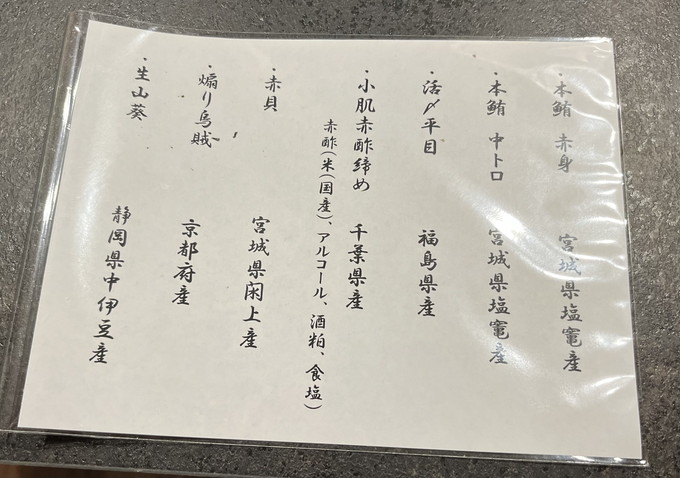 ・本鮪 赤身 宮城県塩竈産
・本鮪 中トロ 宮城県塩竈産
・活〆平目 福島県産
・小肌赤酢締め 千葉県産
赤酢(米(国産)、アルコール、酒粕、食塩)
・赤貝 宮城県閖上産
・煽り烏賊 京都府産
・生山葵 静岡県中伊豆産